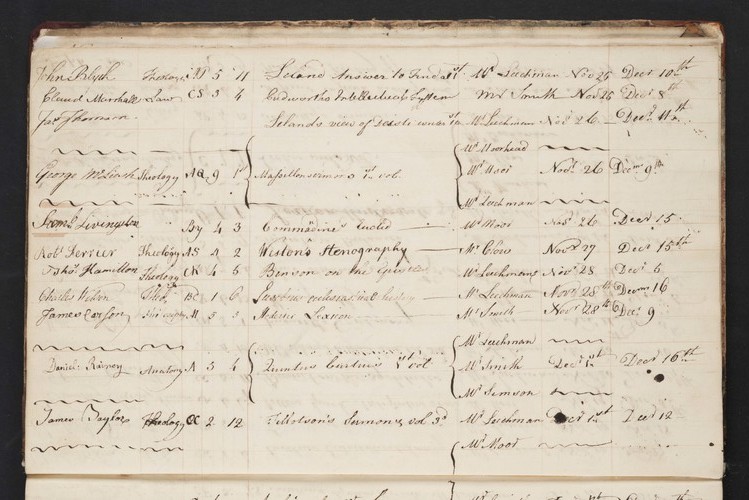 John Blyth Theology M 5 11 Leland Answer to Tindal 1st Mr Leechman Nov 25 Decr 10th
Claud Marshall Law CS 3 4 Cudworths Intellectual System Mr Smith Nov 25 Decr 8th
Jas Thomson Lelands view of Mr Leechman Novr 26 Decr 11th
Mr Moorhead
George Theology AQ 9 1st Massellon sermons 1st vol Mr Moor Novr 26 Decm 9th
Mr Leechman
Saml Livingston By 4 3 Commandine's Euclid Mr Moor Novr 26 Decr 15
Robt Ferrier Theology AS 4 2 Weston's Stenography Mr Clow Novr 27 Decr 15th
Thos Hamilton Theology CK 4 5 Benson on the Epistles Mr Leechmans Novr 28 Decr 5
Charles Theo. BC 1 6 Eusebius ecclesiastical history Mr Leechman Novr 28th Decm 16
James 5 3 Lexicon Mr Smith Novr 28th Decr 9
Mr Leechman
Daniel Rainey Anatomy A 3 4 Quintus Curtius 1st vol Mr Smith Decr 1st Decr 16th
Mr Simson
James Taylor Theology Œ 2 12 Tillotson's Sermons vol 3d Mr Leechman Decr 1st Decr 12
Mr Moor